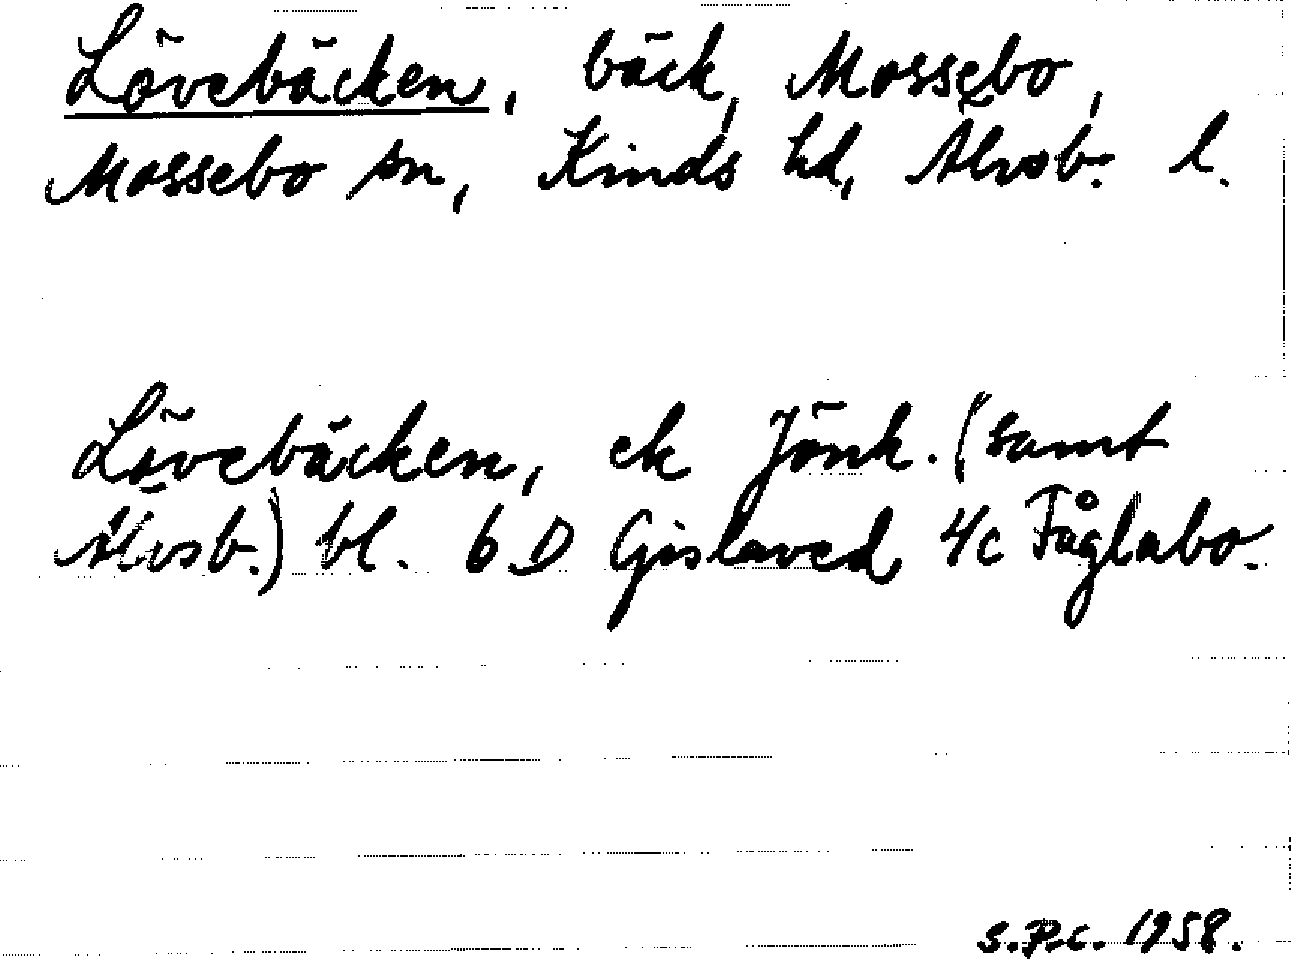 Lövebäcken, bäck, Mossebo,
Mossebo sn, Kinds hd, Älvsb. l.
Lövebäcken, ek Jönk. (samt
Älvsb.) bl. 6 D Gislaved 4c Fåglabo.
S.P.c. 1958.